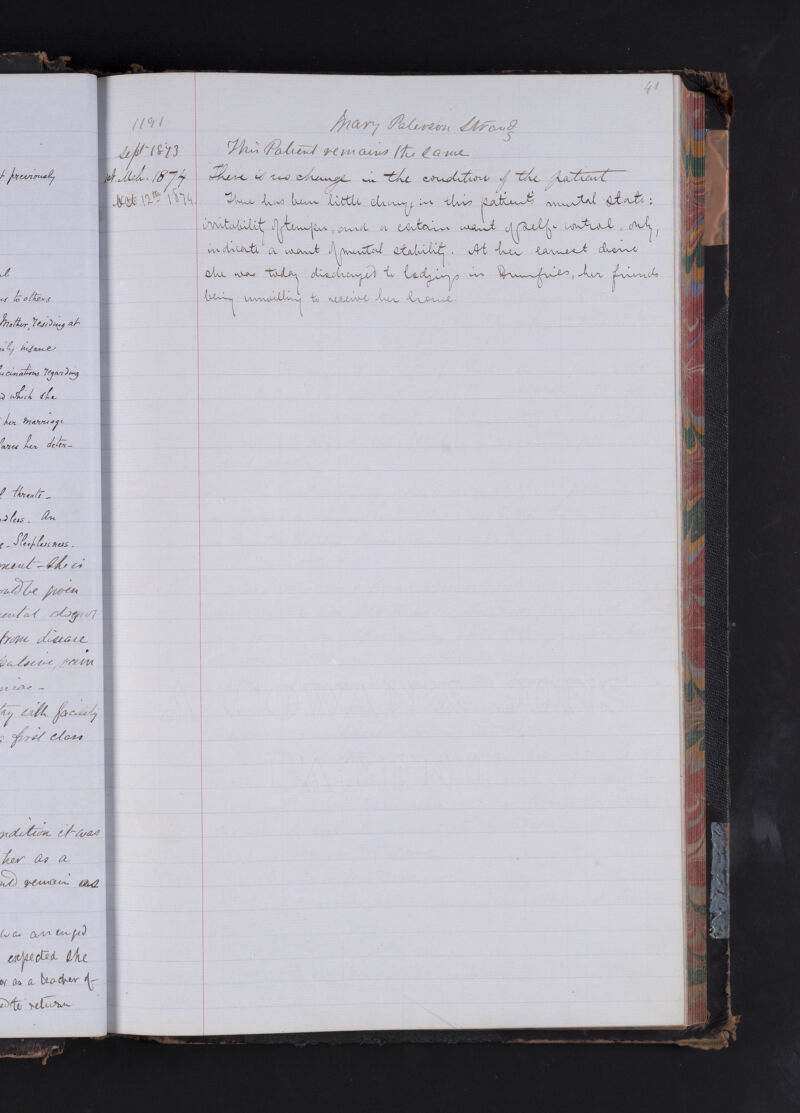 t previously
l
us to others
Mother, residing at
ily insane
ucinations regarding
d which she
her marriage
lares her deter-
l threats-
dless. An
e- Sleeplessness.
ment - She is
ould be given
mental
from disease
pulsive, vain
try with facility
a first class
ndition it was
her as a
uld remain as
was arranged
expected she
or as a teacher of
ed to return
41
1191
Mary Paterson
Sept 1873 This Patient remains the same
Mch. 1874 There is no change in the condition of the patient
12th 1874. There has been little change in this patient's mental state:
irritability of temper, and a certain want of self-control, only,
indicate a want of mental stability. At her earnest desire
she was today discharged to lodgings in Dumfries, her friends
being unwilling to receive her home.